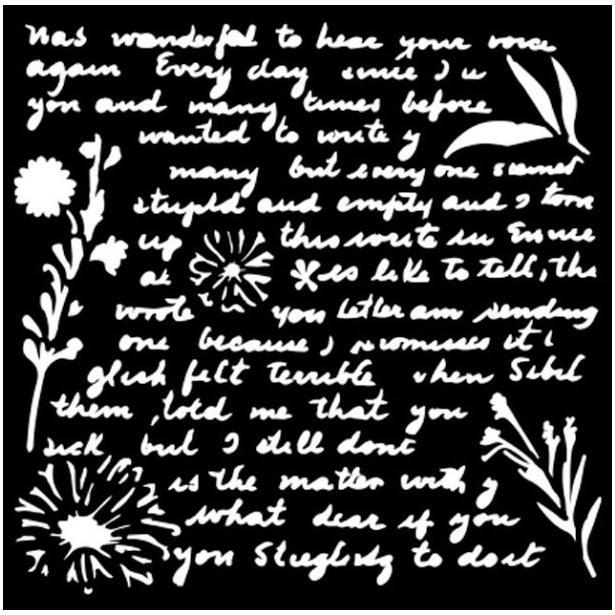 was wonderful to hear your voice
again Every day since I
you and many times before
wanted to write y
many but every one seemed
stupid and empty and I tore
up this write in
at is like to tell, the
wrote you letter am sending
one because I promises it i
glish felt terrible when Sibil
them, told me that you
sick but I still dont
is the matter with y
what dear if you
you to dot